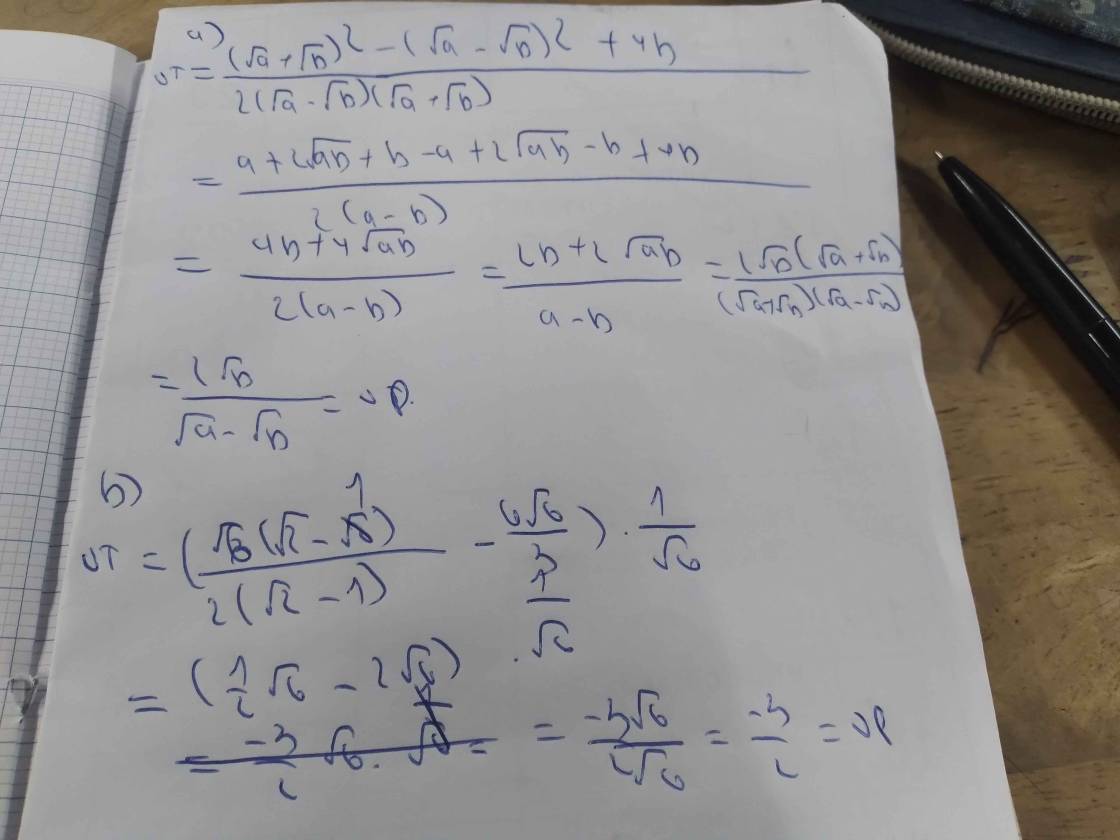 a)
VT = ((√a + √b)² - (√a - √b)² + 4b) / (2(√a - √b)(√a + √b))
= (a + 2√ab + b - a + 2√ab - b + 4b) / (2(a - b))
= (4b + 4√ab) / (2(a - b)) = (2b + 2√ab) / (a - b) = (2√b(√a + √b)) / ((√a + √b)(√a - √b))
= (2√b) / (√a - √b) = VP.
b)
VT = ((√6(√2 - 1)) / (2(√2 - 1)) - (6√6) / 3) . 1 / √6
= (1/2 √6 - 2√6) . 1 / √6
= (-3√6) / (2√6) = -3 / 2 = VP